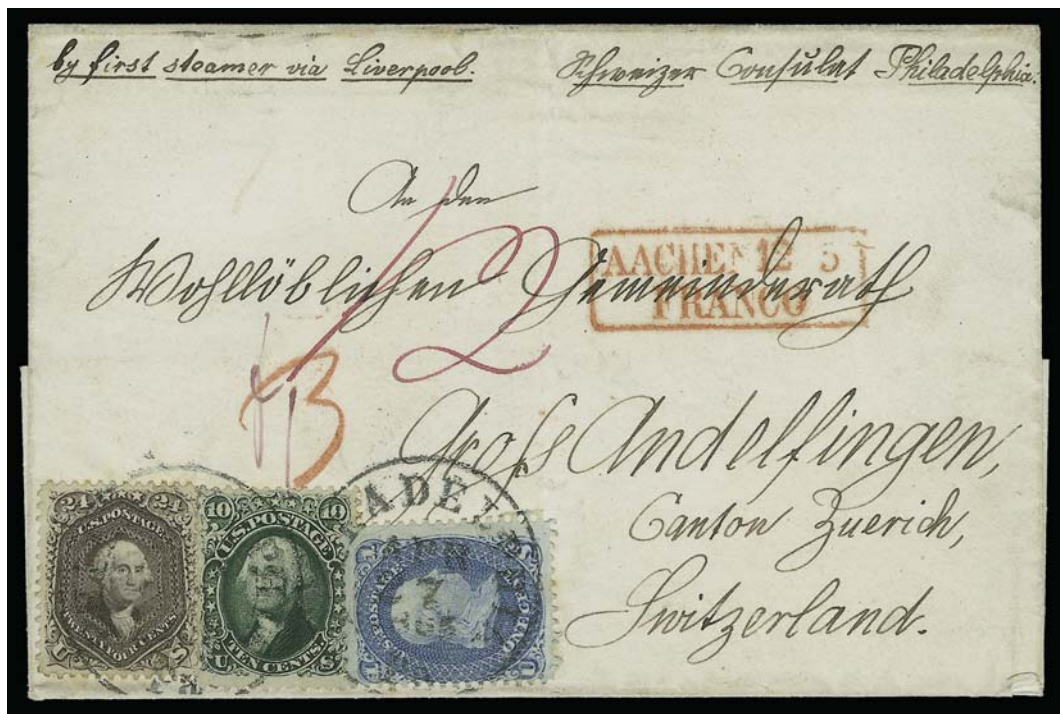 by first steamer via Liverpool.
Schweizer Consulat Philadelphia.
An den
Wohllöblichen Gemeinderath
AACHEN 12 5
FRANCO
12
3
Groß Andelfingen,
Canton Zuerich,
Switzerland.
24 24
U.S. POSTAGE
TWENTY FOUR CENTS
U S
10 10
U.S. POSTAGE
TEN CENTS
U. S.
U.S. POSTAGE
ONE CENT
ADEL
7